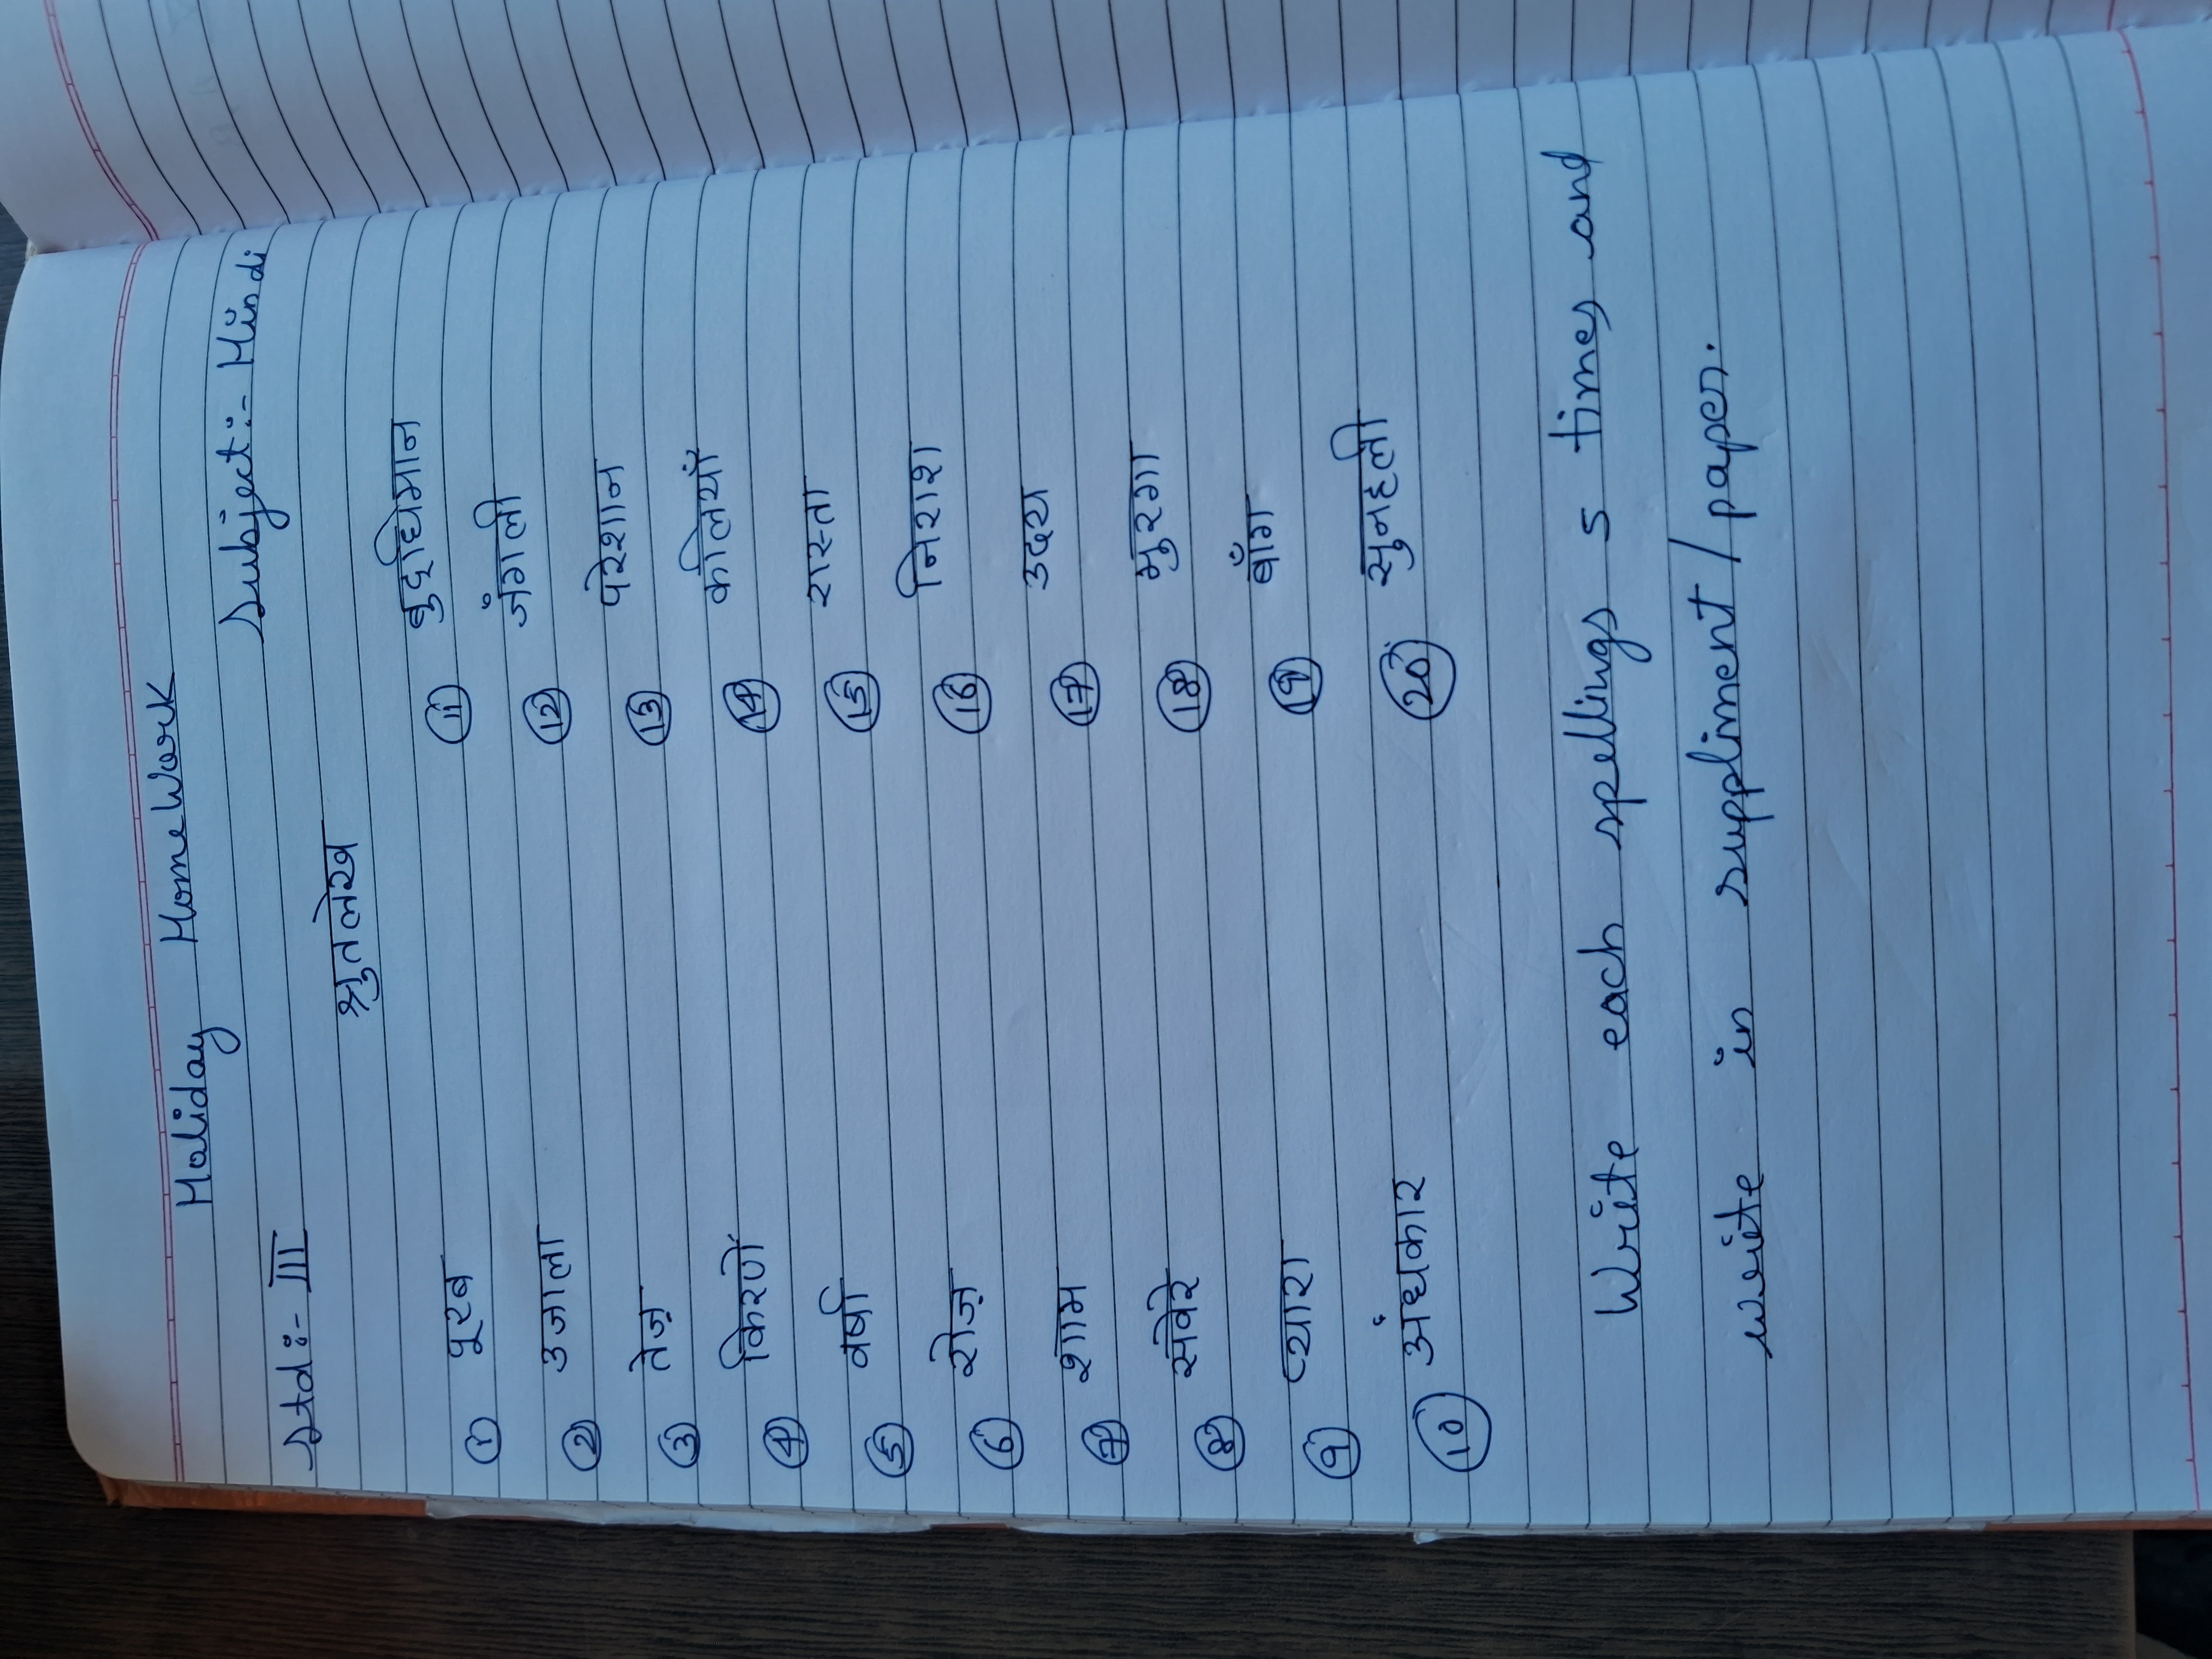 Holiday HomeWork
Std:- III Subject:- Hindi
श्रुतलेख
① पूरब ⑪ बुद्धिमान
② उजाला ⑫ जँगली
③ तेज़ ⑬ परेशान
④ किरणें ⑭ कलियाँ
⑤ वर्षा ⑮ रास्ता
⑥ रोज़ ⑯ निराश
⑦ शाम ⑰ उदय
⑧ सवेरे ⑱ मुरगा
⑨ प्यारा ⑲ बाँग
⑩ अंधकार ⑳ सुनहली
Write each spellings 5 times and
write in suppliment / paper.